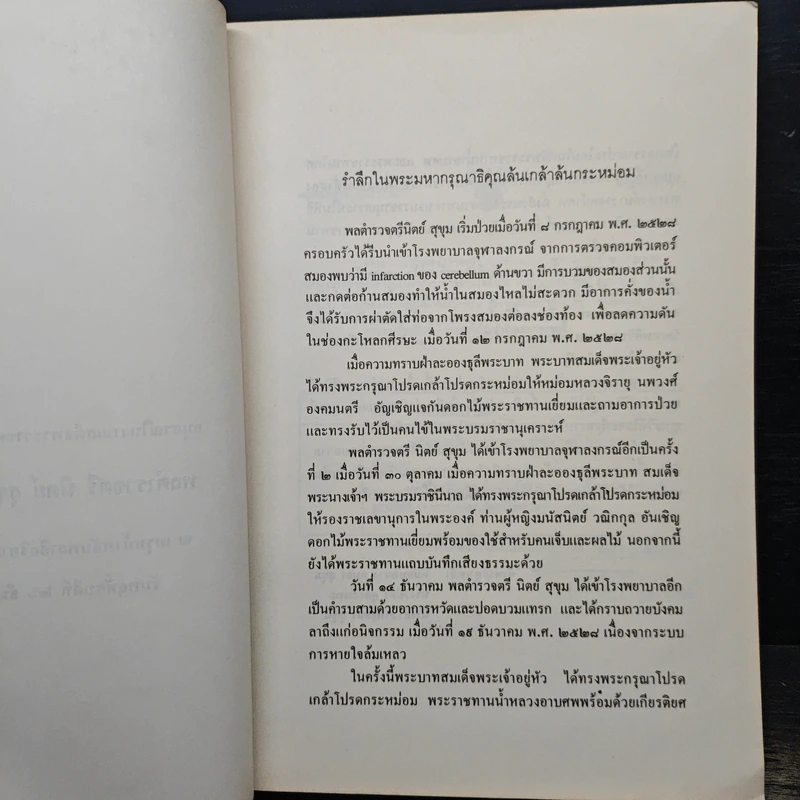 รำลึกในพระมหากรุณาธิคุณล้นเกล้าล้นกระหม่อม
พลตำรวจตรีนิตย์ สุขุม เริ่มป่วยเมื่อวันที่ ๘ กรกฎาคม พ.ศ. ๒๕๒๘
ครอบครัวได้รีบนำเข้าโรงพยาบาลจุฬาลงกรณ์ จากการตรวจคอมพิวเตอร์
สมองพบว่ามี infarction ของ cerebellum ด้านขวา มีการบวมของสมองส่วนนั้น
และกดต่อก้านสมองทำให้น้ำในสมองไหลไม่สะดวก มีอาการคั่งของน้ำ
จึงได้รับการผ่าตัดใส่ท่อจากโพรงสมองต่อลงช่องท้อง เพื่อลดความดัน
ในช่องกะโหลกศีรษะ เมื่อวันที่ ๑๒ กรกฎาคม พ.ศ. ๒๕๒๘
เมื่อความทราบฝ่าละอองธุลีพระบาท พระบาทสมเด็จพระเจ้าอยู่หัว
ได้ทรงพระกรุณาโปรดเกล้าโปรดกระหม่อมให้หม่อมหลวงจิรายุ นพวงศ์
องคมนตรี อัญเชิญแจกันดอกไม้พระราชทานเยี่ยมและถามอาการป่วย
และทรงรับไว้เป็นคนไข้ในพระบรมราชานุเคราะห์
พลตำรวจตรี นิตย์ สุขุม ได้เข้าโรงพยาบาลจุฬาลงกรณ์อีกเป็นครั้ง
ที่ ๒ เมื่อวันที่ ๓๐ ตุลาคม เมื่อความทราบฝ่าละอองธุลีพระบาท สมเด็จ
พระนางเจ้าฯ พระบรมราชินีนาถ ได้ทรงพระกรุณาโปรดเกล้าโปรดกระหม่อม
ให้รองราชเลขานุการในพระองค์ ท่านผู้หญิงมนัสนิตย์ วณิกกุล อันเชิญ
ดอกไม้พระราชทานเยี่ยมพร้อมของใช้สำหรับคนเจ็บและผลไม้ นอกจากนี้
ยังได้พระราชทานแถบบันทึกเสียงธรรมะด้วย
วันที่ ๑๔ ธันวาคม พลตำรวจตรี นิตย์ สุขุม ได้เข้าโรงพยาบาลอีก
เป็นคำรบสามด้วยอาการหวัดและปอดบวมแทรก และได้กราบถวายบังคม
ลาถึงแก่อนิจกรรม เมื่อวันที่ ๑๙ ธันวาคม พ.ศ. ๒๕๒๘ เนื่องจากระบบ
การหายใจล้มเหลว
ในครั้งนี้พระบาทสมเด็จพระเจ้าอยู่หัว ได้ทรงพระกรุณาโปรด
เกล้าโปรดกระหม่อม พระราชทานน้ำหลวงอาบศพพร้อมด้วยเกียรติยศ